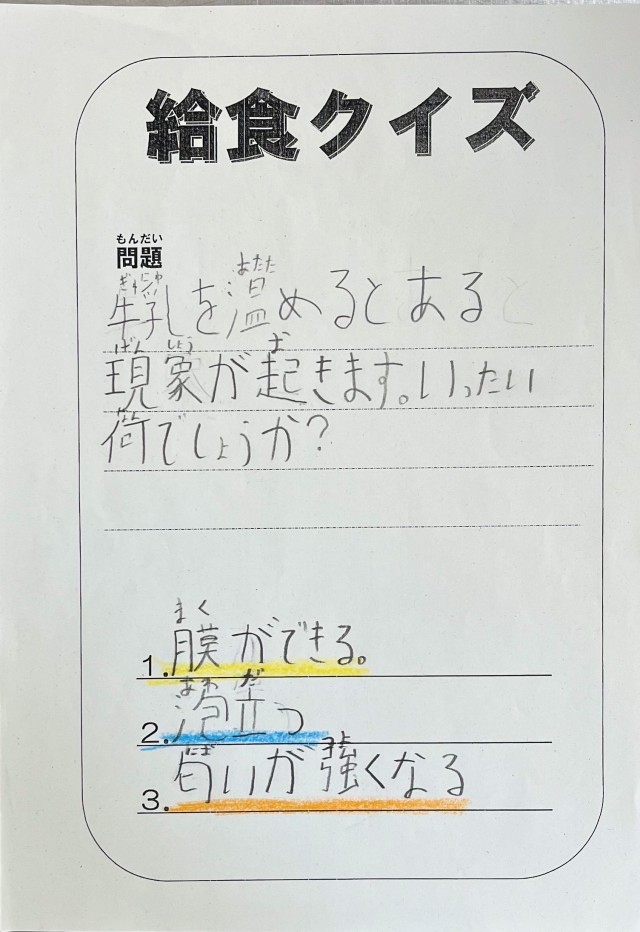 給食クイズ
もんだい
問題
ぎゅうにゅう あたた
牛乳を温めるとある
げん しょう お
現象が起きます。いったい
なん
荷でしょうか?
まく
1. 膜ができる。
あわ だ
2. 泡立つ
にお つよ
3. 匂いが強くなる